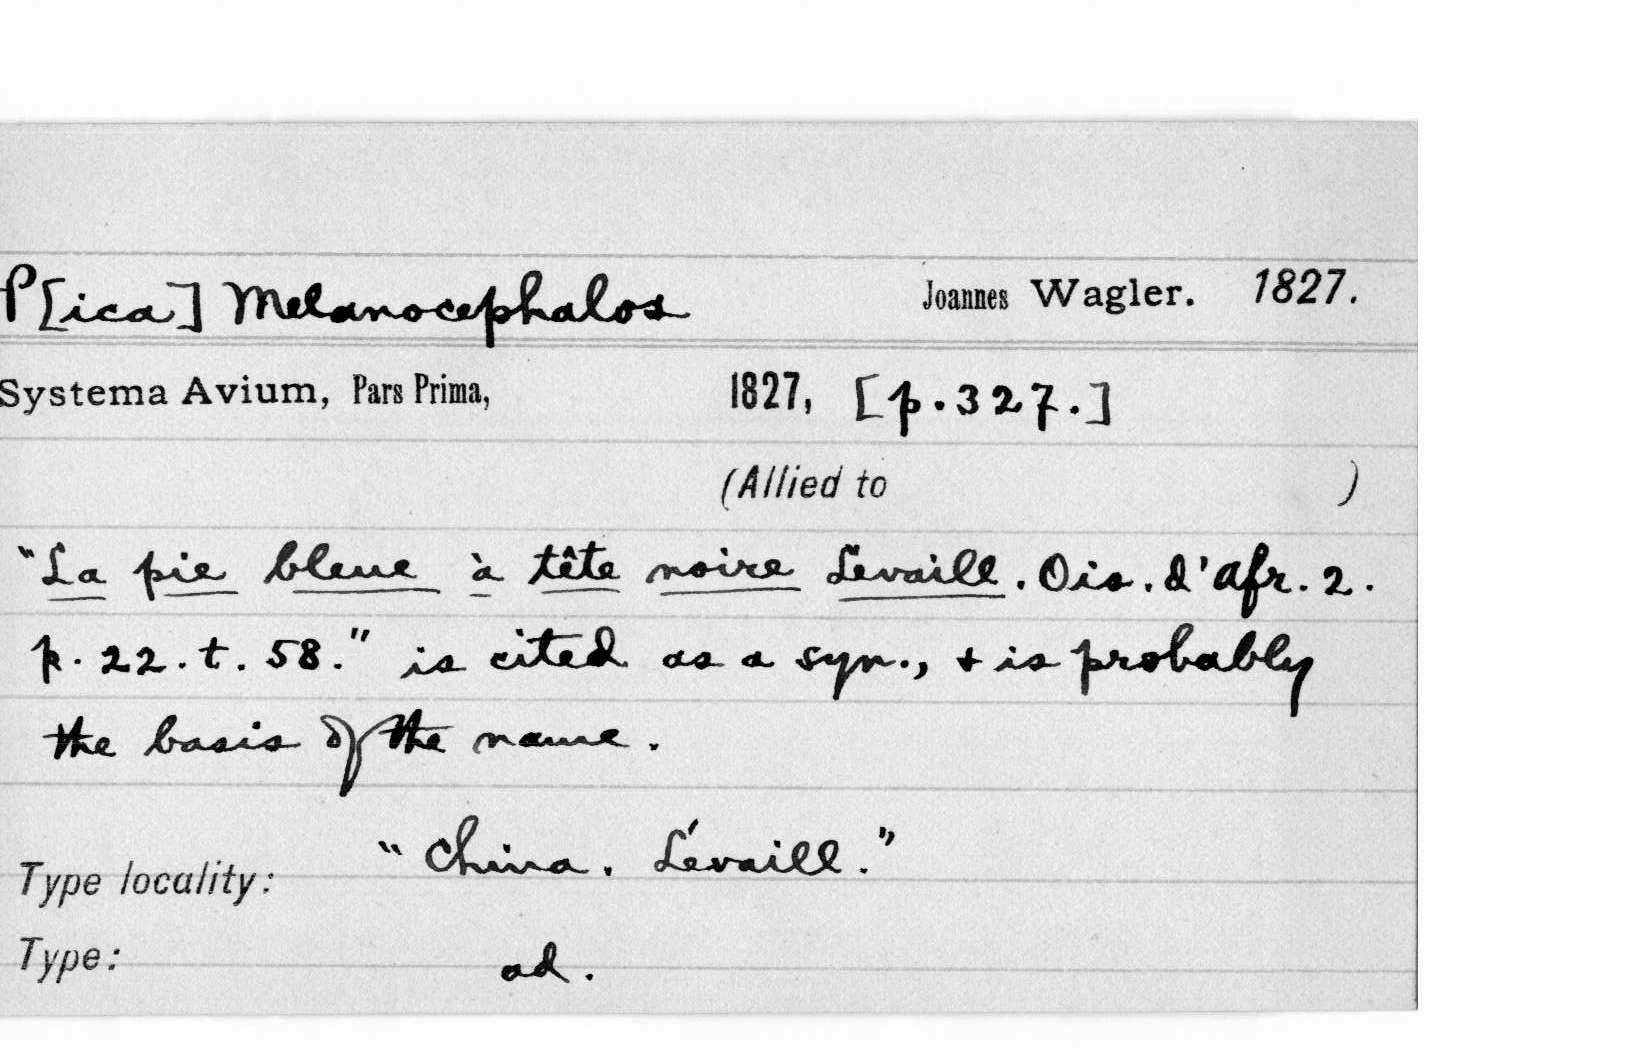 P[ica] Melanocephalos Joannes Wagler. 1827.
Systema Avium, Pars Prima, 1827, [p.327.]
(Allied to )
"La pie bleue à tête noire Levaill. Ois. d'Afr. 2.
p. 22. t. 58." is cited as a syn., + is probably
the basis of the name.
Type locality: "China. Lévaill."
Type: ad.